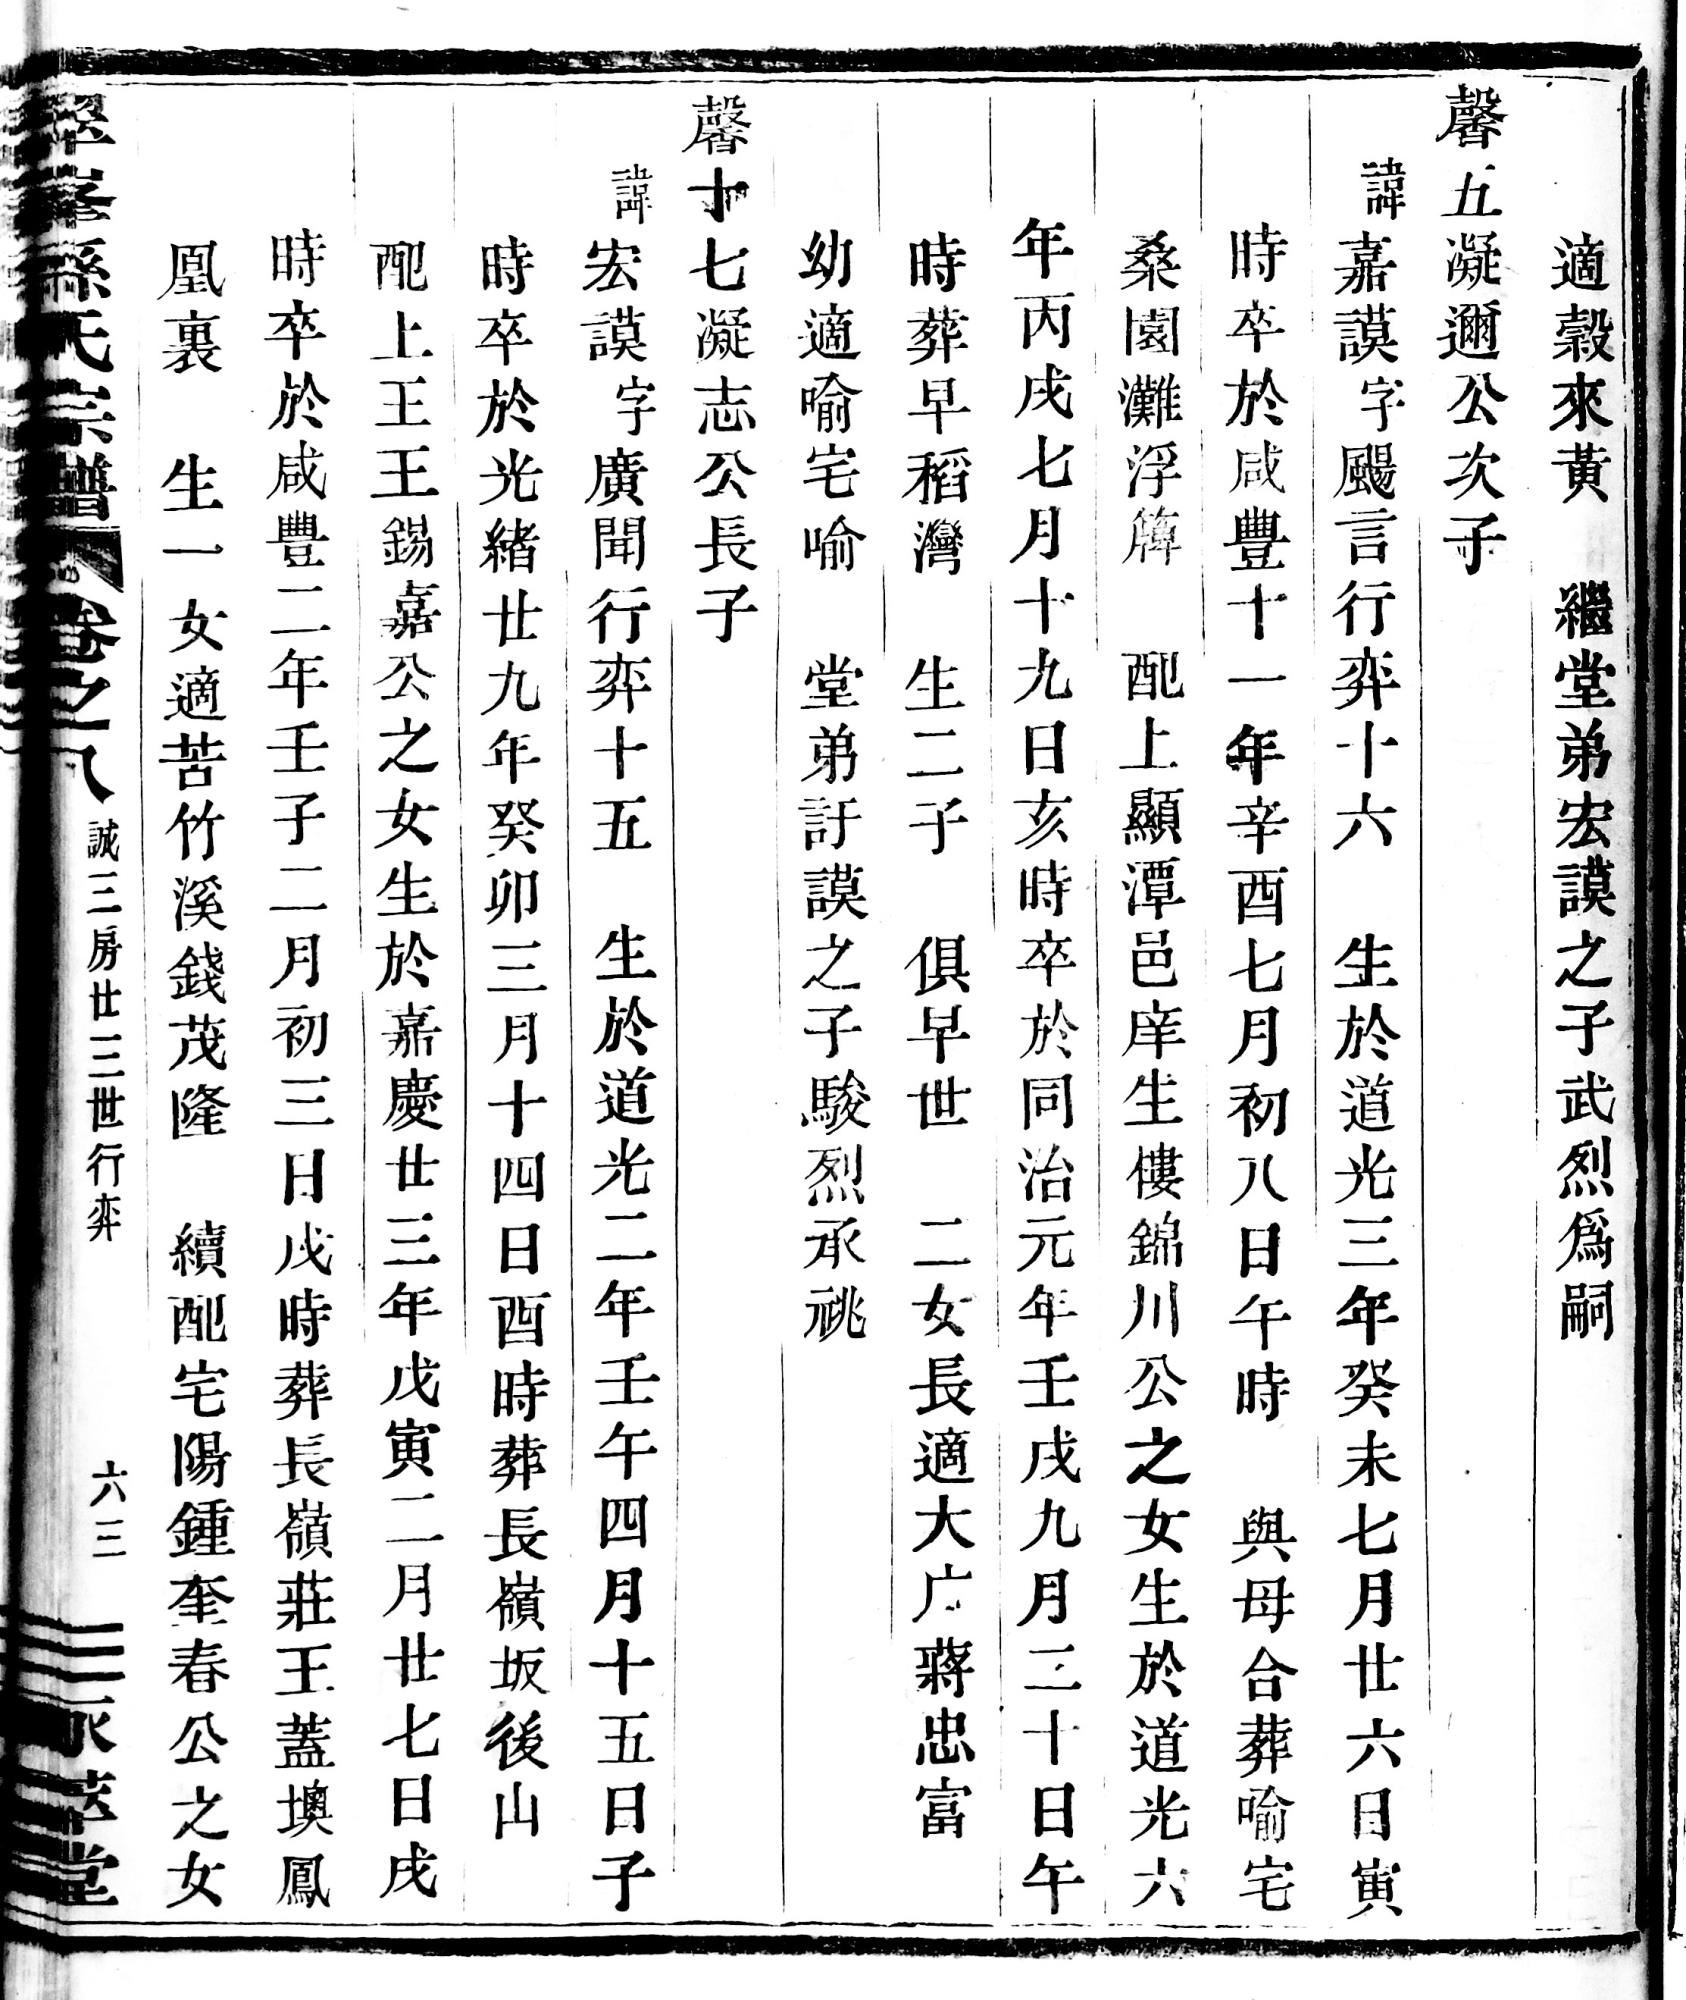 適穀來黃　繼堂弟宏謨之子武烈爲嗣
馨五凝邇公次子
諱嘉謨字颺言行弈十六　生於道光三年癸未七月廿六日寅
時卒於咸豐十一年辛酉七月初八日午時　與母合葬喻宅
桑園灘浮簰　配上顯潭邑庠生樓錦川公之女生於道光六
年丙戌七月十九日亥時卒於同治元年壬戌九月二十日午
時葬早稻灣　生二子　俱早世　二女長適大广蔣忠富
幼適喻宅喻　堂弟訏謨之子駿烈承祧
馨十七凝志公長子
諱宏謨字廣聞行弈十五　生於道光二年壬午四月十五日子
時卒於光緒廿九年癸卯三月十四日酉時葬長嶺坂後山
配上王王錫嘉公之女生於嘉慶廿三年戊寅二月廿七日戌
時卒於咸豐二年壬子二月初三日戌時葬長嶺莊王蓋墺鳳
凰裏　生一女適苦竹溪錢茂隆　續配宅陽鍾奎春公之女
孫氏宗譜　卷之八　誠三房廿三世行弈　六三　萃堂